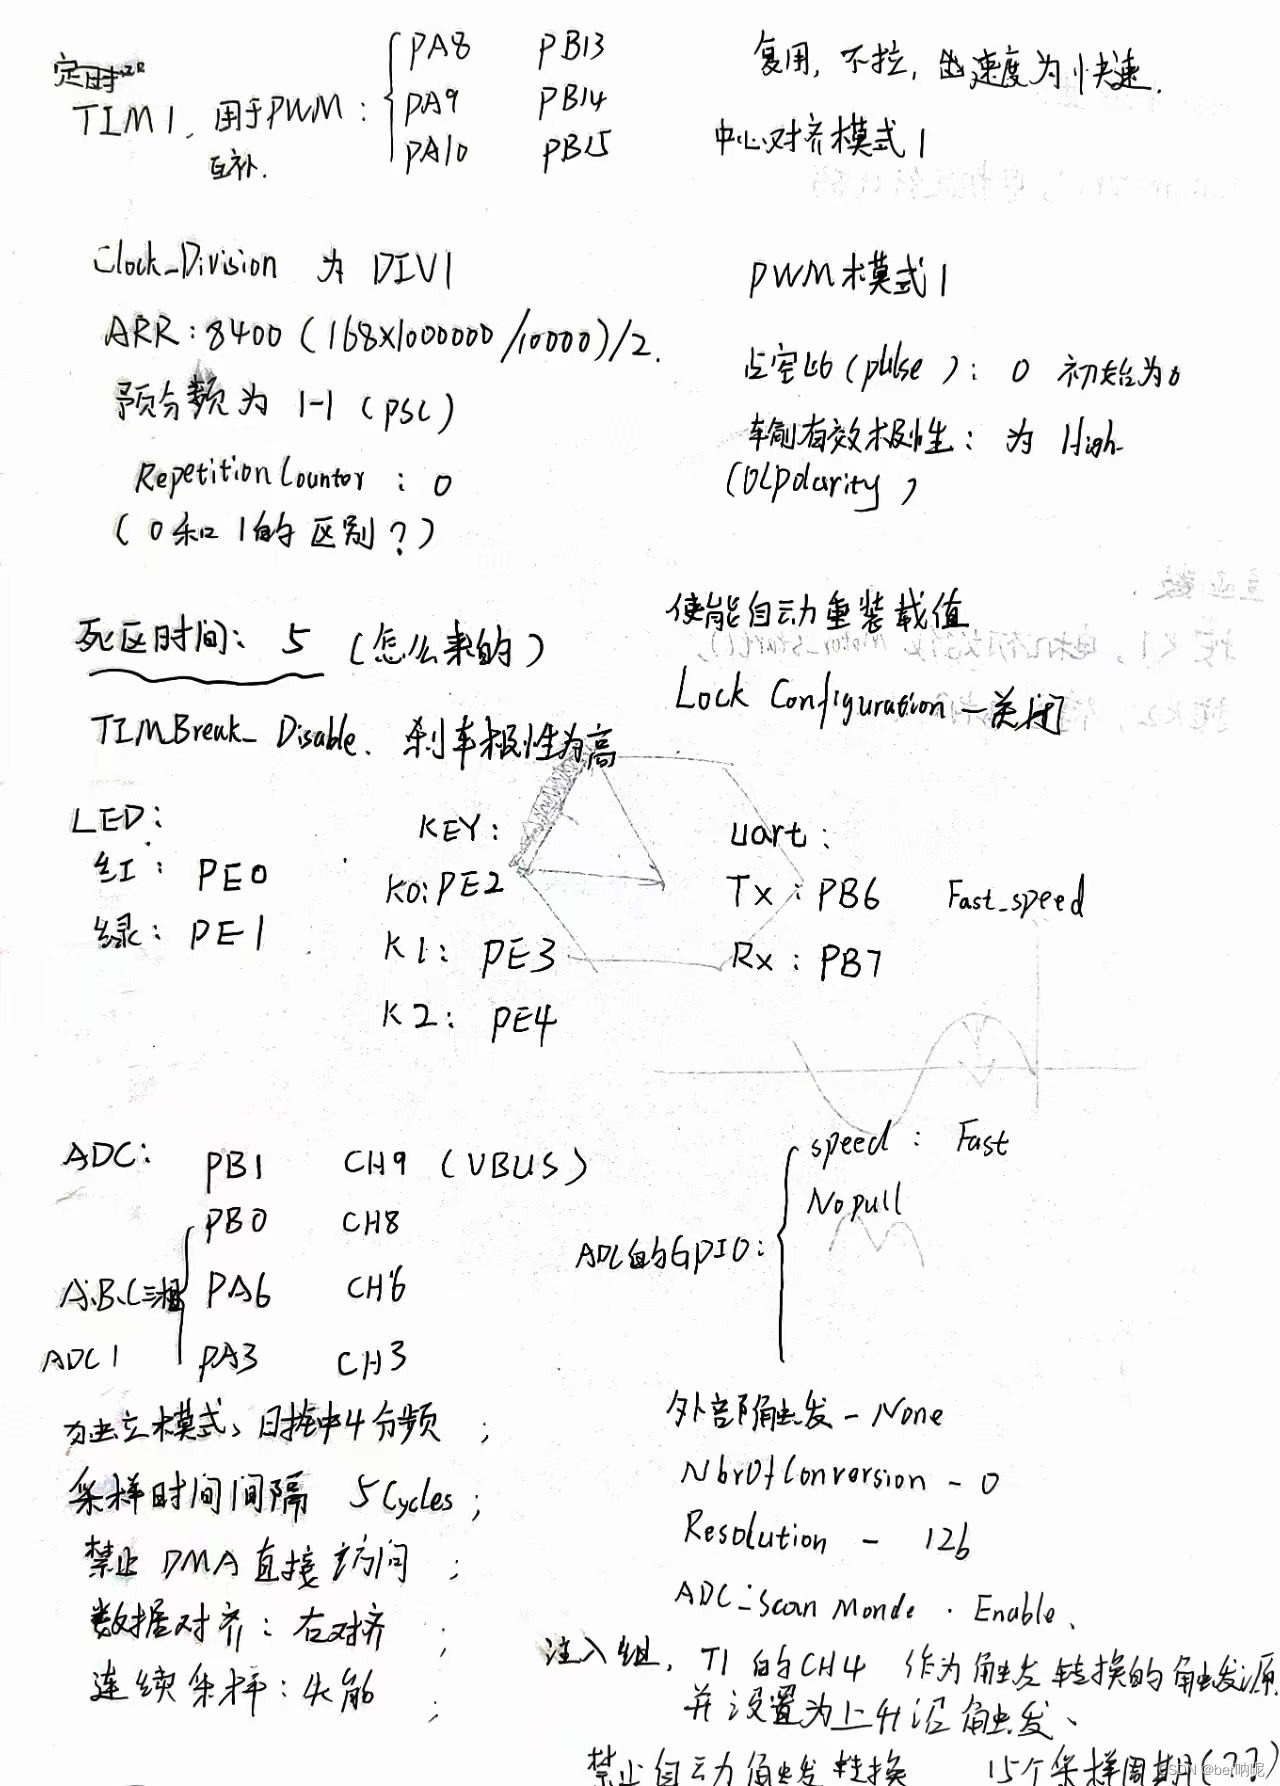 定时器
TIM1, 用于PWM:
互补.
PA8 PB13
PA9 PB14
PA10 PB15
复用, 不拉, 出速度为快速.
中心对齐模式1
Clock_Division 为 DIV1
ARR: 8400 (168×1000000/10000)/2.
预分频为 1-1 (PSC)
Repetition Countor : 0
(0和1的区别?)
PWM模式1
占空比(pulse): 0 初始为0
输有效极性: 为 High
(OCpolarity)
死区时间: 5 (怎么来的)
TIMBreak_Disable. 刹车极性为高
使能自动重装载值
Lock Configuration—关闭
LED:
红: PE0
绿: PE1
KEY:
K0: PE2
K1: PE3
K2: PE4
Uart:
Tx: PB6 Fast_speed
Rx: PB7
ADC: PB1 CH9 (VBUS)
PB0 CH8
A.B.C三相 PA6 CH6
ADC1 PA3 CH3
ADC的GPIO:
speed: Fast
Nopull
为独立模式、时钟4分频;
采样时间间隔 5Cycles;
禁止 DMA直接访问;
数据对齐: 右对齐;
连续采样: 失能;
外部触发 - None
NbrOfConversion - 0
Resolution - 12b
ADC_Scan Monde. Enable、
注入组, T1的CH4 作为触发转换的触发源
并设置为上升沿触发、
禁止自动触发转换 15个采样周期(??)
CSDN @bei呐呢